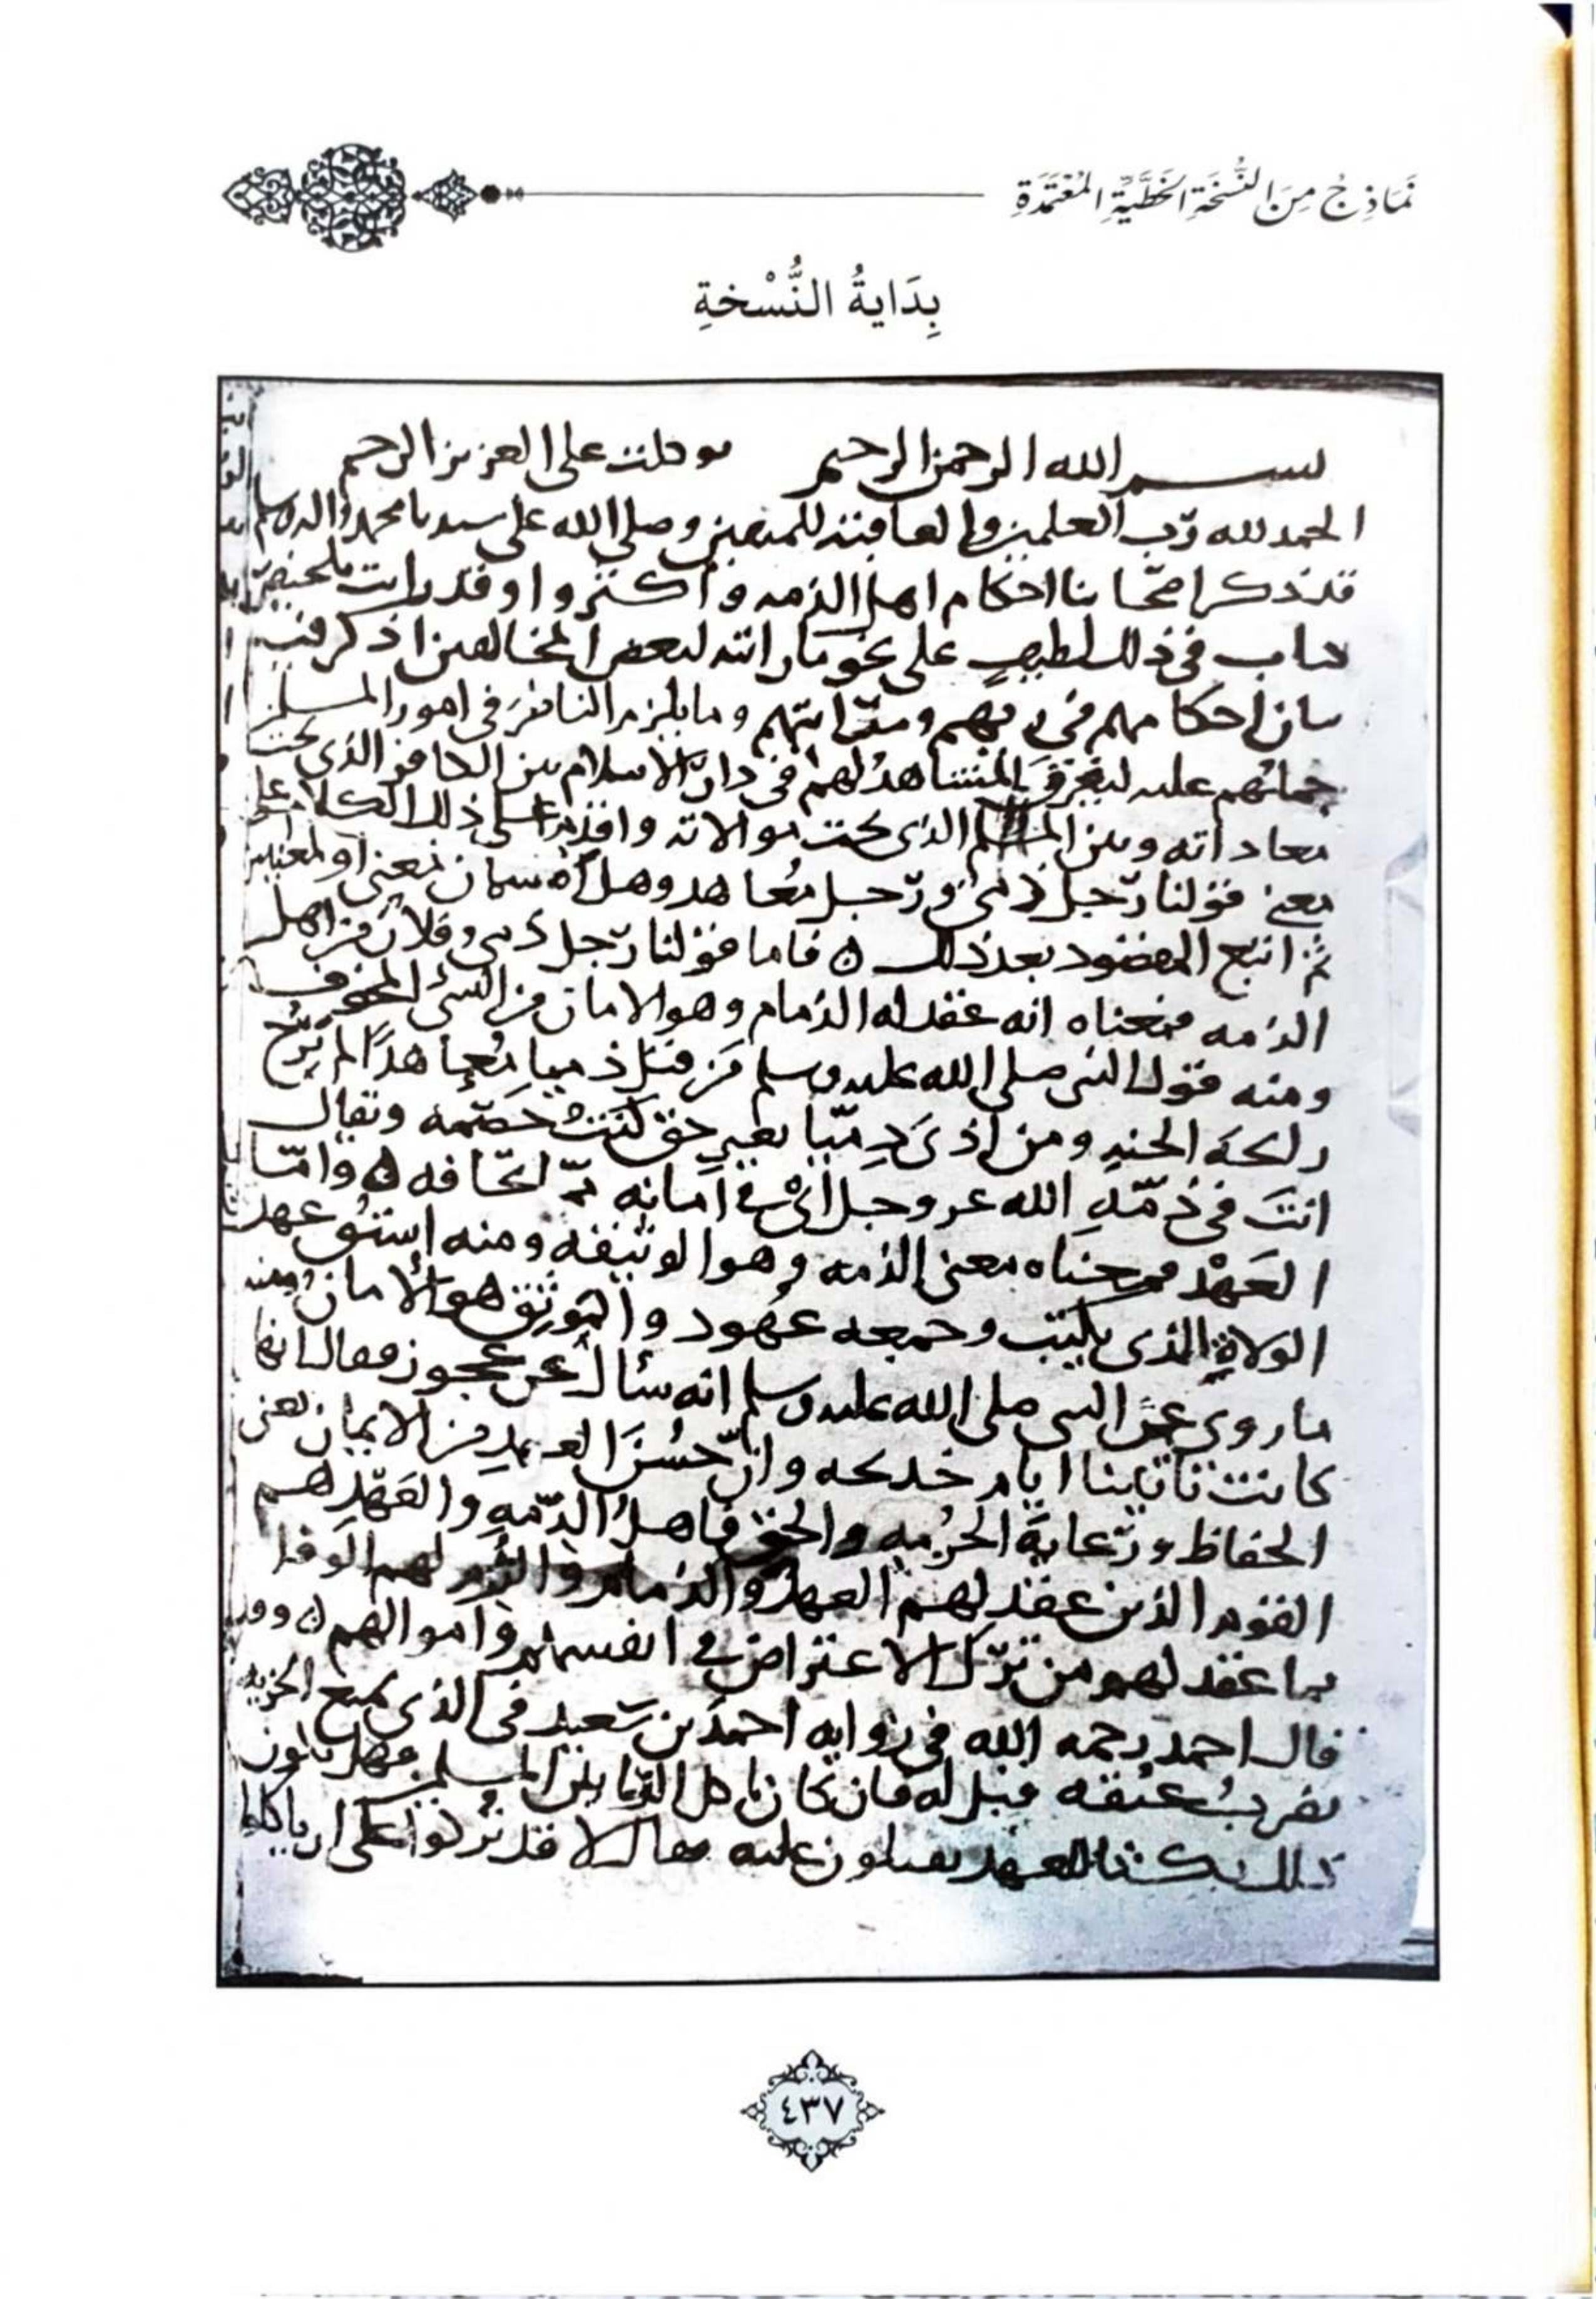 نَمَاذِجُ مِنَ النُّسْخَةِ الخَطِّيَّةِ المُعْتَمَدَةِ
بِدَايَةُ النُّسْخةِ
بسم الله الرحمن الرحيم توكلت على العزيز الرحيم
الحمد لله رب العلمين والعاقبة للمتقين وصلى الله على سيدنا محمد واله وسلم
قد ذكر اصحابنا احكام اهل الذمه واكثروا وقد رايت تلخيص
كتاب في ذلك لطيف على نحو ما راىته لبعض المخالفين اذكر فيه
بيان احكامهم في ومتىراىتهم وما يلزم الناظر في امور المسلمين
حملهم عليه ليفرق المشاهد لهم في دار الاسلام بين الكافر الذي تحب
معاداته وبين المسلم الذي تحب موالاته واقدم على ذلك الكلام على
معنى قولنا رجل ذمي ورجل معاهد وهل هما سيان بمعنى او لمعنيين
ثم اتبع المقصود بعد ذلك ه فاما قولنا رجل ذمي وفلان من اهل
الذمه فمعناه انه عقد له الذمام وهو الامان من الشي المخوف
ومنه قول النبي صلى الله عليه وسلم من قتل ذميا معاهدا لم يرح
رائحة الجنه ومن اذى ذِميّا بغير حق كنت خصمه ويقال
انت في ذمّهِ الله عز وجل اي في امانه ممّا تخافه ه وامّا
العَهْد فمعناه معنى الذمه وهو الوثيقه ومنه اشتق عهد
الولاةِ الذي يكتب وجمعه عهود والتوثق هو الامان ومنه
ما روي عن النبي صلى الله عليه وسلم انه سأل عن عجوز فقال انها
كانت تاتينا ايام خديجه وانّ حُسْنَ العهدِ من الايمان يعني
الحفاظ ورعاية الحُرْمهِ والحق فاهلُ الذّمهِ والعَهْدِ هم
القوم الذين عقد لهم العهد والذمام والزم لهم الوفا
بما عقد لهم من ترك الاعتراض في انفسهم واموالهم ه وقد
قال احمد رحمه الله في روايه احمد بن سعيد في الذي يمنع الجزيه
تضربُ عنقه قيل له فان كان ياكل الربا بين المسلمين فهل يكون
ذلك نكثا للعهد يقتلون عليه فقال لا قد تركوا على ان ياكلوا
٤٣٧